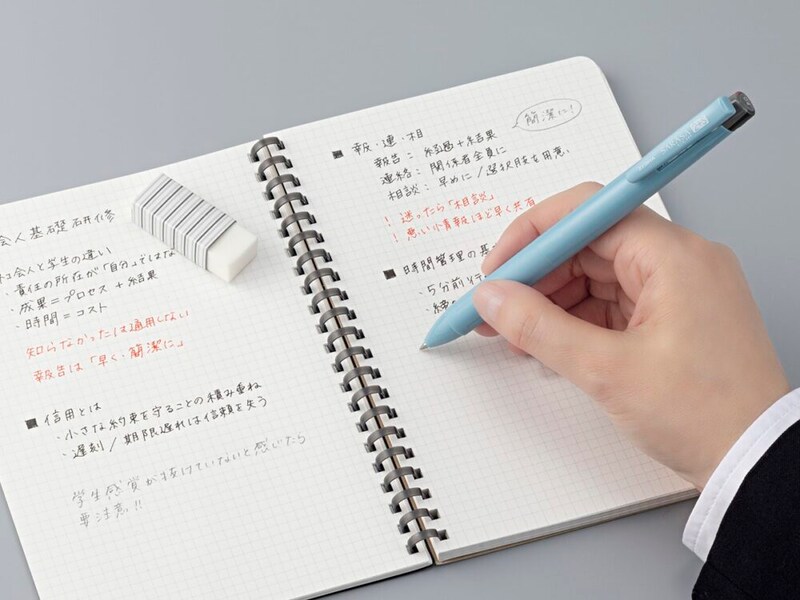 会人基礎研修
社会人と学生の違い
・責任の所在が「自分」
・成果=プロセス+結果
・時間=コスト
知らなかったは通用しない
報告は「早く・簡潔に」
■信用とは
・小さな約束を守ることの積み重ね
・遅刻/期限遅れは信頼を失う
学生感覚が抜けていないと感じたら
要注意!!
■報・連・相
簡潔に!
報告:経過+結果
連絡:関係者全員に
相談:早めに/選択肢を用意
! 迷ったら「相談」
! 悪い情報ほど早く共有
■時間管理の基
・5分前行
・締め